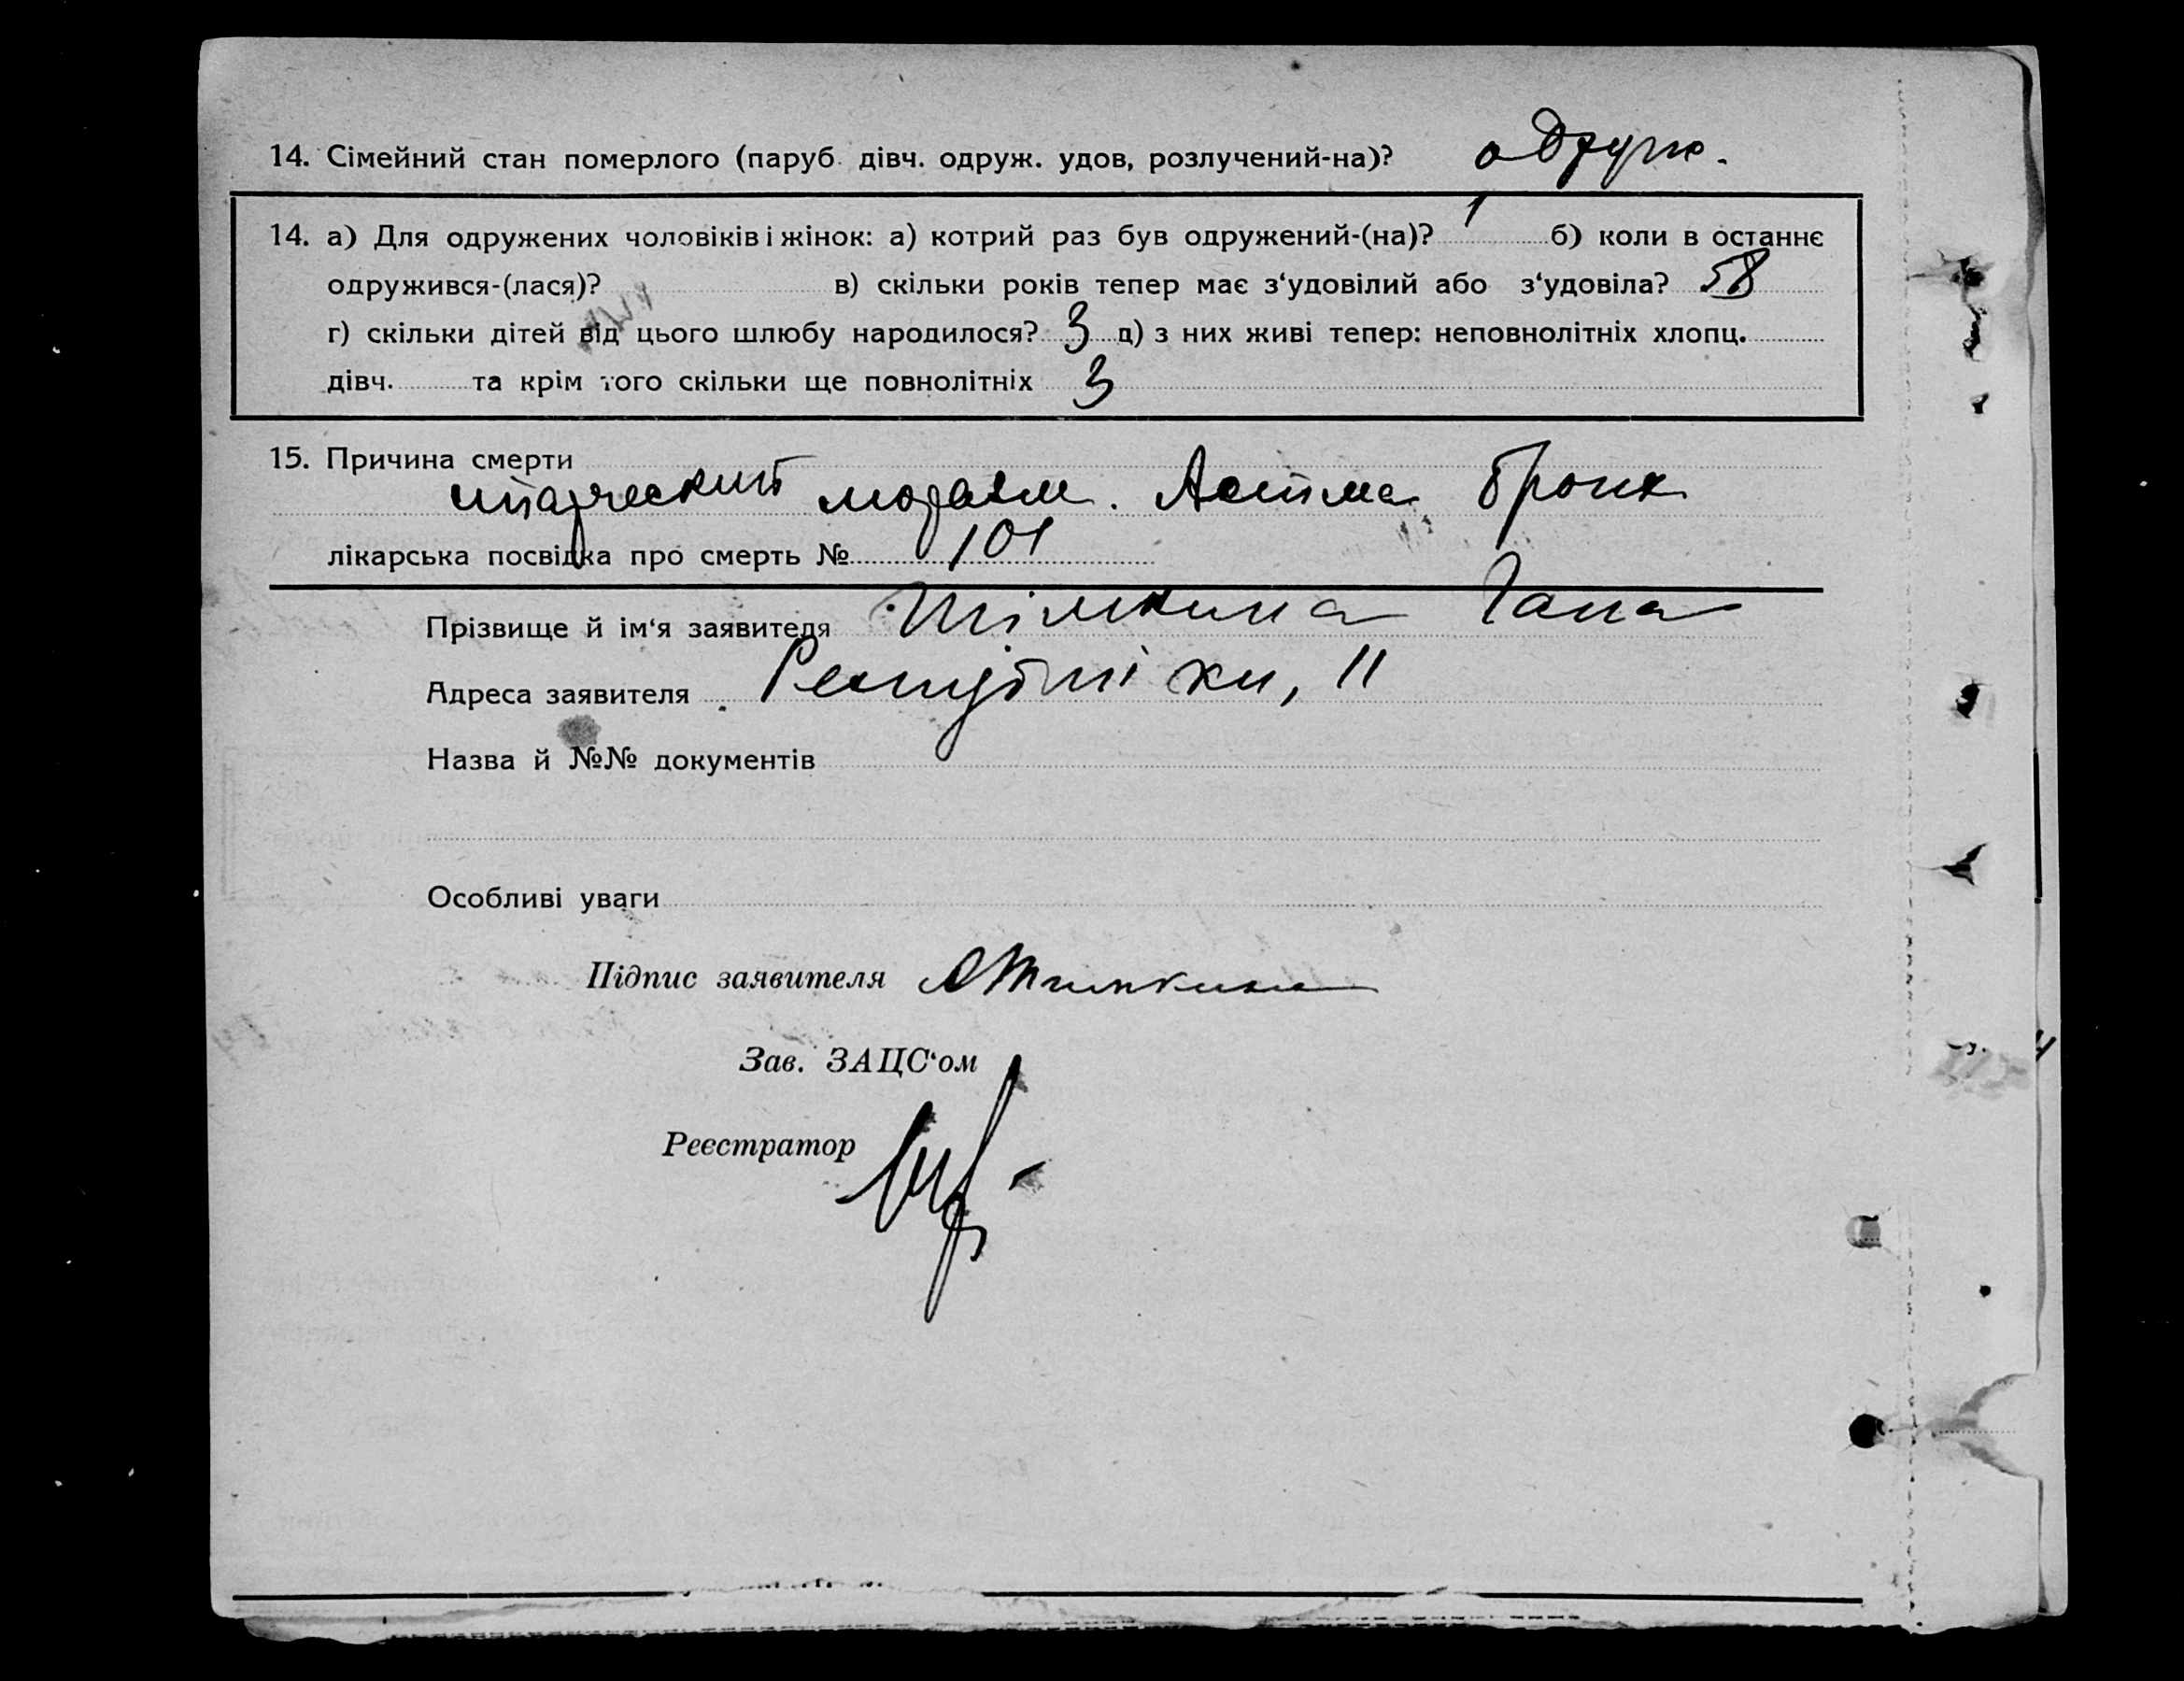 14. Сімейний стан померлого (паруб. дівч. одруж. удов, розлучений-на)? одруж.
14. а) Для одружених чоловіків і жінок: а) котрий раз був одружений-(на)? 1 б) коли в останнє
одружився-(лася)? в) скільки років тепер має з‘удовілий або з‘удовіла? 58
г) скільки дітей від цього шлюбу народилося? 3 д) з них живі тепер: неповнолітніх хлопц.
дівч. та крім того скільки ще повнолітніх 3
15. Причина смерти
старческий маразм. Астма бронх
лікарська посвідка про смерть № 101
Прізвище й ім‘я заявителя Шімкина Гана
Адреса заявителя Республіки, 11
Назва й №№ документів
Особливі уваги
Підпис заявителя
Зав. ЗАЦС‘ом
Реєстратор